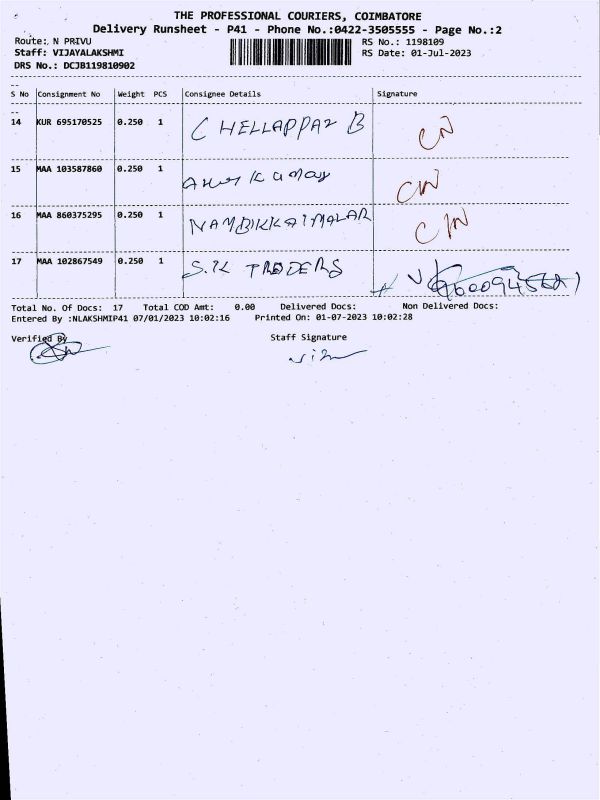 THE PROFESSIONAL COURIERS, COIMBATORE
Delivery Runsheet - P41 - Phone No.:0422-3505555 - Page No.:2
Route: N PRIVU RS No.: 1198109
Staff: VIJAYALAKSHMI RS Date: 01-Jul-2023
DRS No.: DCJB119810902
S No Consignment No Weight PCS Consignee Details Signature
14 KUR 695170525 0.250 1 CHELLAPPAN B CN
15 MAA 103587860 0.250 1 Kumar CN
16 MAA 860375295 0.250 1 NAMBIKKAIMALAR CN
17 MAA 102867549 0.250 1 S.K TRADERS
Total No. Of Docs: 17 Total COD Amt: 0.00 Delivered Docs: Non Delivered Docs:
Entered By :NLAKSHMIP41 07/01/2023 10:02:16 Printed On: 01-07-2023 10:02:28
Verified By Staff Signature